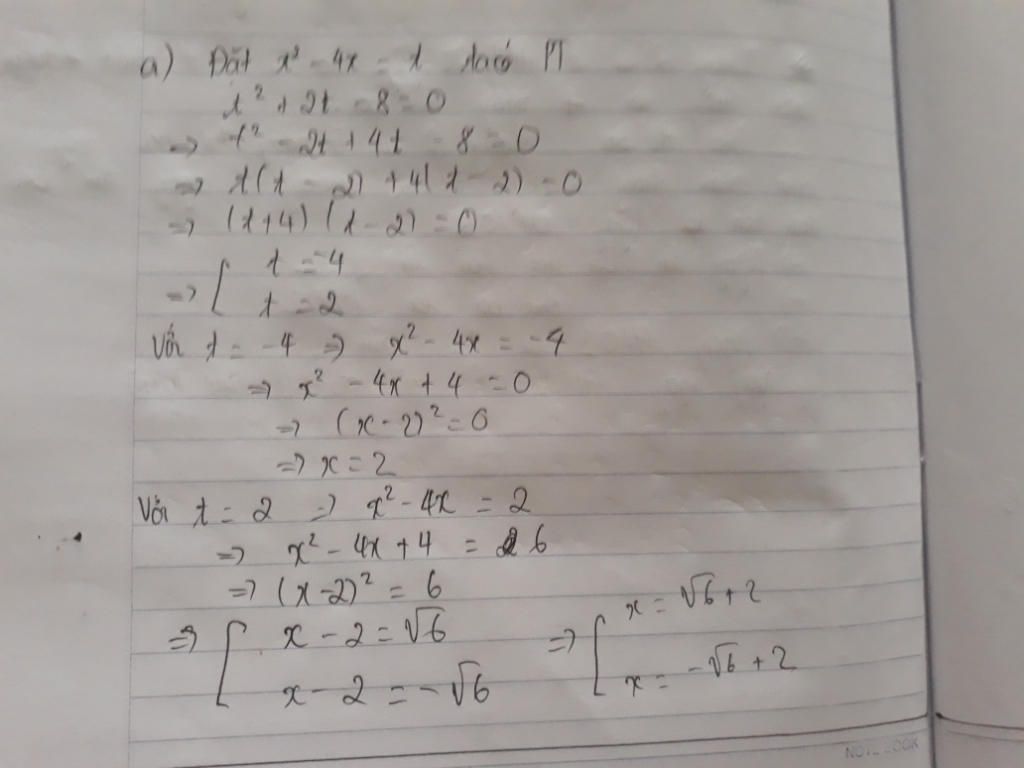 a) Đặt x² - 4x = t ta có PT
t² + 2t - 8 = 0
=> t² - 2t + 4t - 8 = 0
=> t(t - 2) + 4(t - 2) = 0
=> (t+4) (t - 2) = 0
=> [ t = -4
t = 2
Với t = -4 => x² - 4x = -4
=> x² - 4x + 4 = 0
=> (x - 2)² = 0
=> x = 2
Với t = 2 => x² - 4x = 2
=> x² - 4x + 4 = 6
=> (x - 2)² = 6
=> [ x - 2 = √6 => [ x = √6 + 2
x - 2 = -√6 x = -√6 + 2
NOTEBOOK